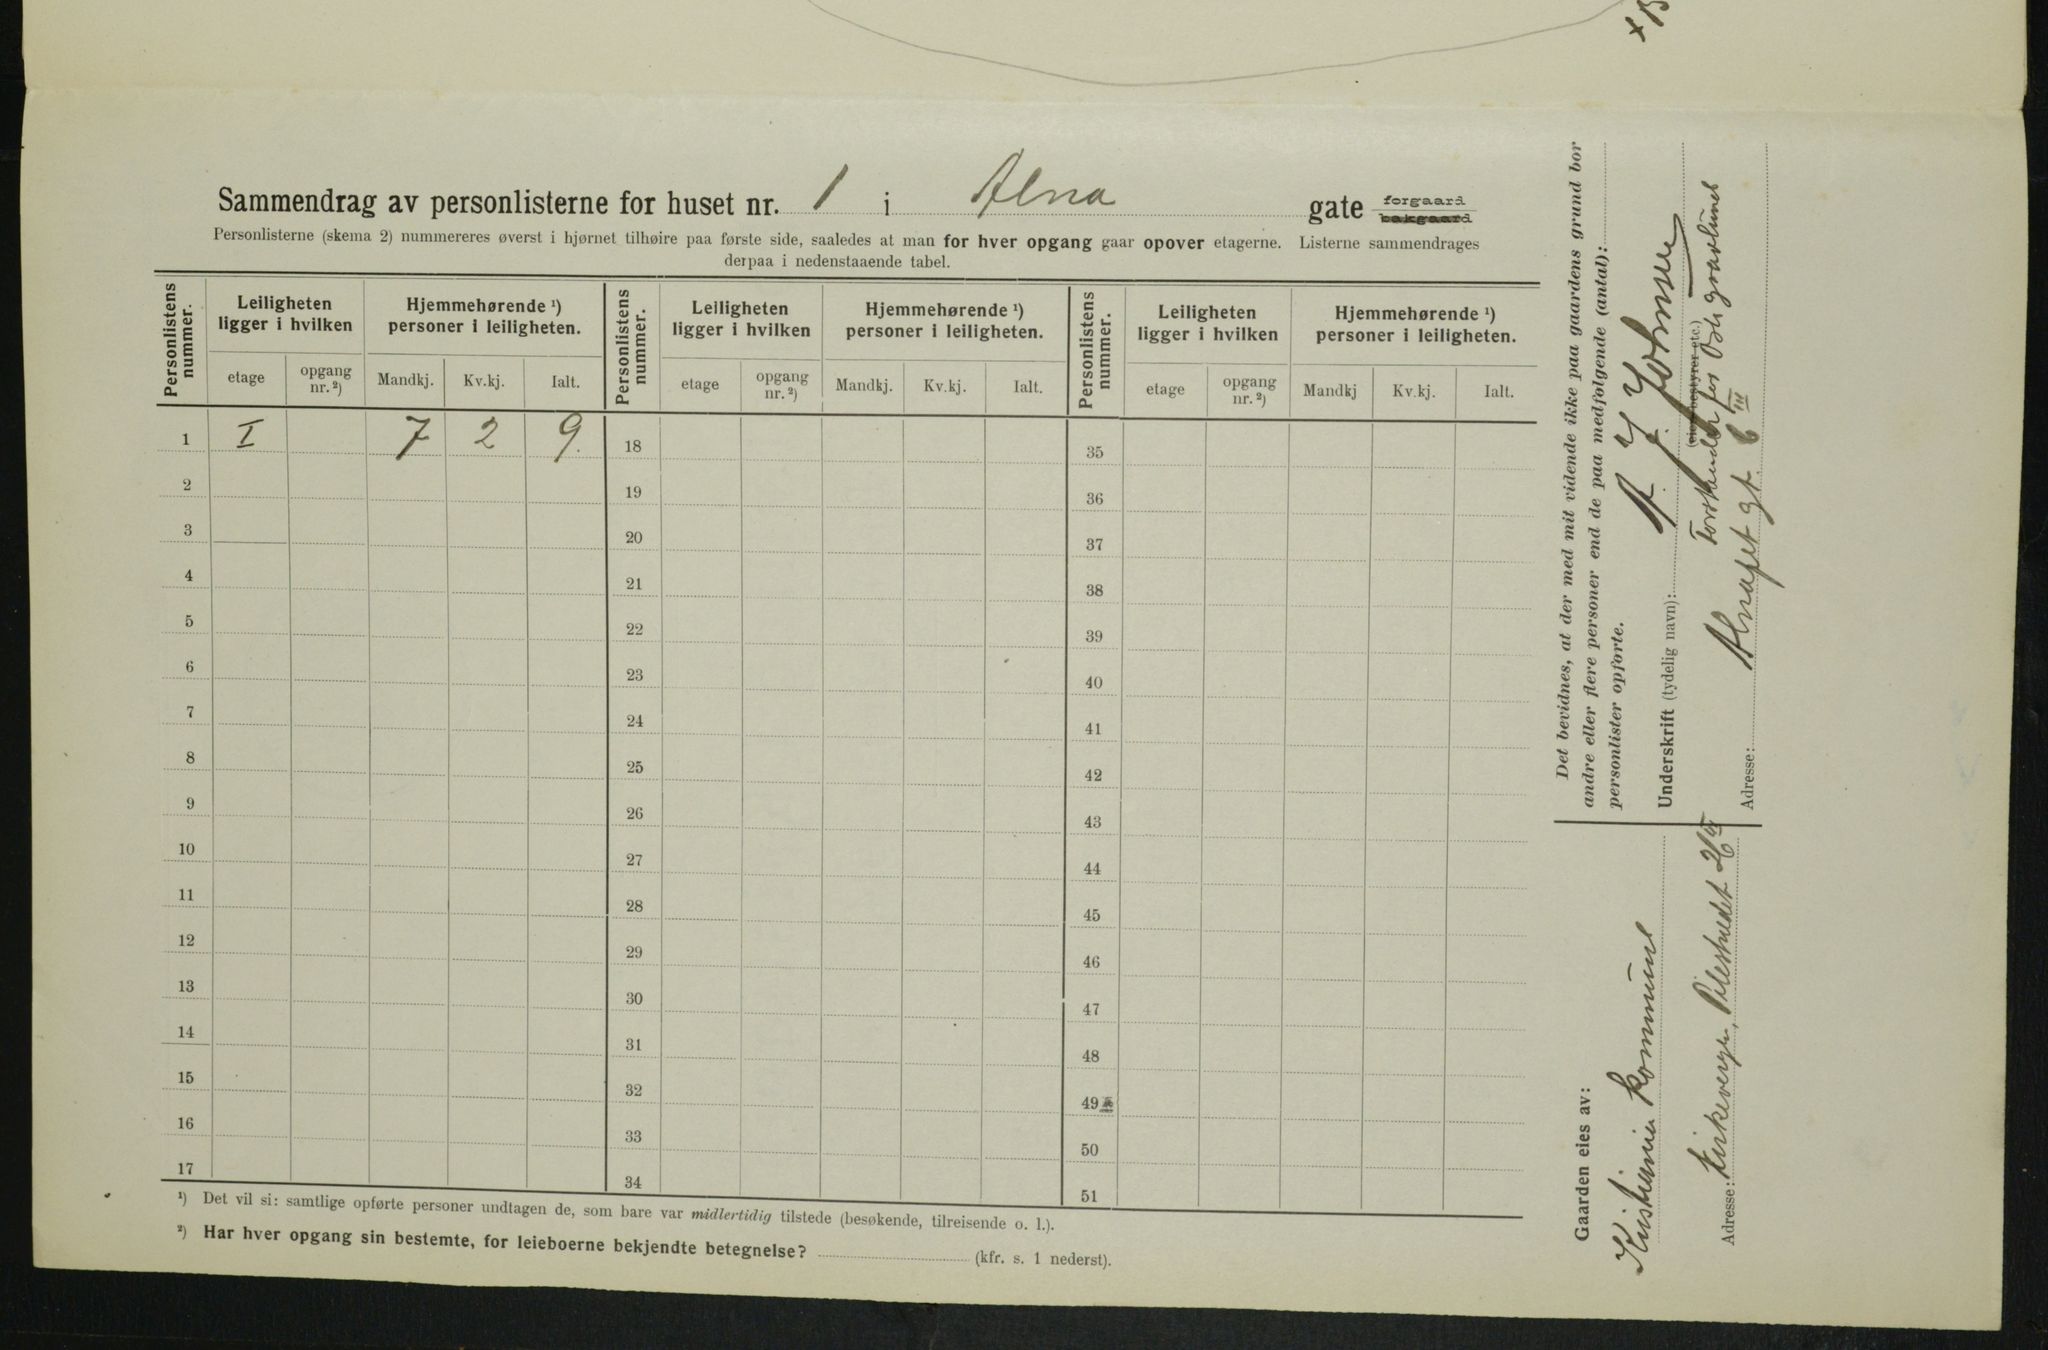 Sammendrag av personlisterne for huset nr. 1 i Alna gate forgaard bakgaard
Personlisterne (skema 2) nummereres øverst i hjørnet tilhøire paa første side, saaledes at man for hver opgang gaar opover etagerne. Listerne sammendrages
derpaa i nedenstaaende tabel.
Personlistens nummer. Leiligheten ligger i hvilken Hjemmehørende ¹) personer i leiligheten. Personlistens nummer. Leiligheten ligger i hvilken Hjemmehørende ¹) personer i leiligheten. Personlistens nummer. Leiligheten ligger i hvilken Hjemmehørende ¹) personer i leiligheten.
etage opgang nr. ²) Mandkj. Kv.kj. Ialt. etage opgang nr. ²) Mandkj. Kv.kj. Ialt. etage opgang nr. ²) Mandkj Kv.kj. Ialt.
1 I 7 2 9. 18 35
2 19 36
3 20 37
4 21 38
5 22 39
6 23 40
7 24 41
8 25 42
9 26 43
10 27 44
11 28 45
12 29 46
13 30 47
14 31 48
15 32 49
16 33 50
17 34 51
¹) Det vil si: samtlige opførte personer undtagen de, som bare var midlertidig tilstede (besøkende, tilreisende o. l.).
²) Har hver opgang sin bestemte, for leieboerne bekjendte betegnelse? (kfr. s. 1 nederst).
Det bevidnes, at der med mit vidende ikke paa gaardens grund bor
andre eller flere personer end de paa medfølgende (antal):
personlister opførte.
Underskrift (tydelig navn): A. J. Johnsen
(eier, bestyrer etc.)
Forstander for Oslo gravlund
Adresse: Alnafet gt. 6 III
Gaarden eies av:
Kristiania kommune
Adresse: Kirkevergen, Pilestrædet 26 III